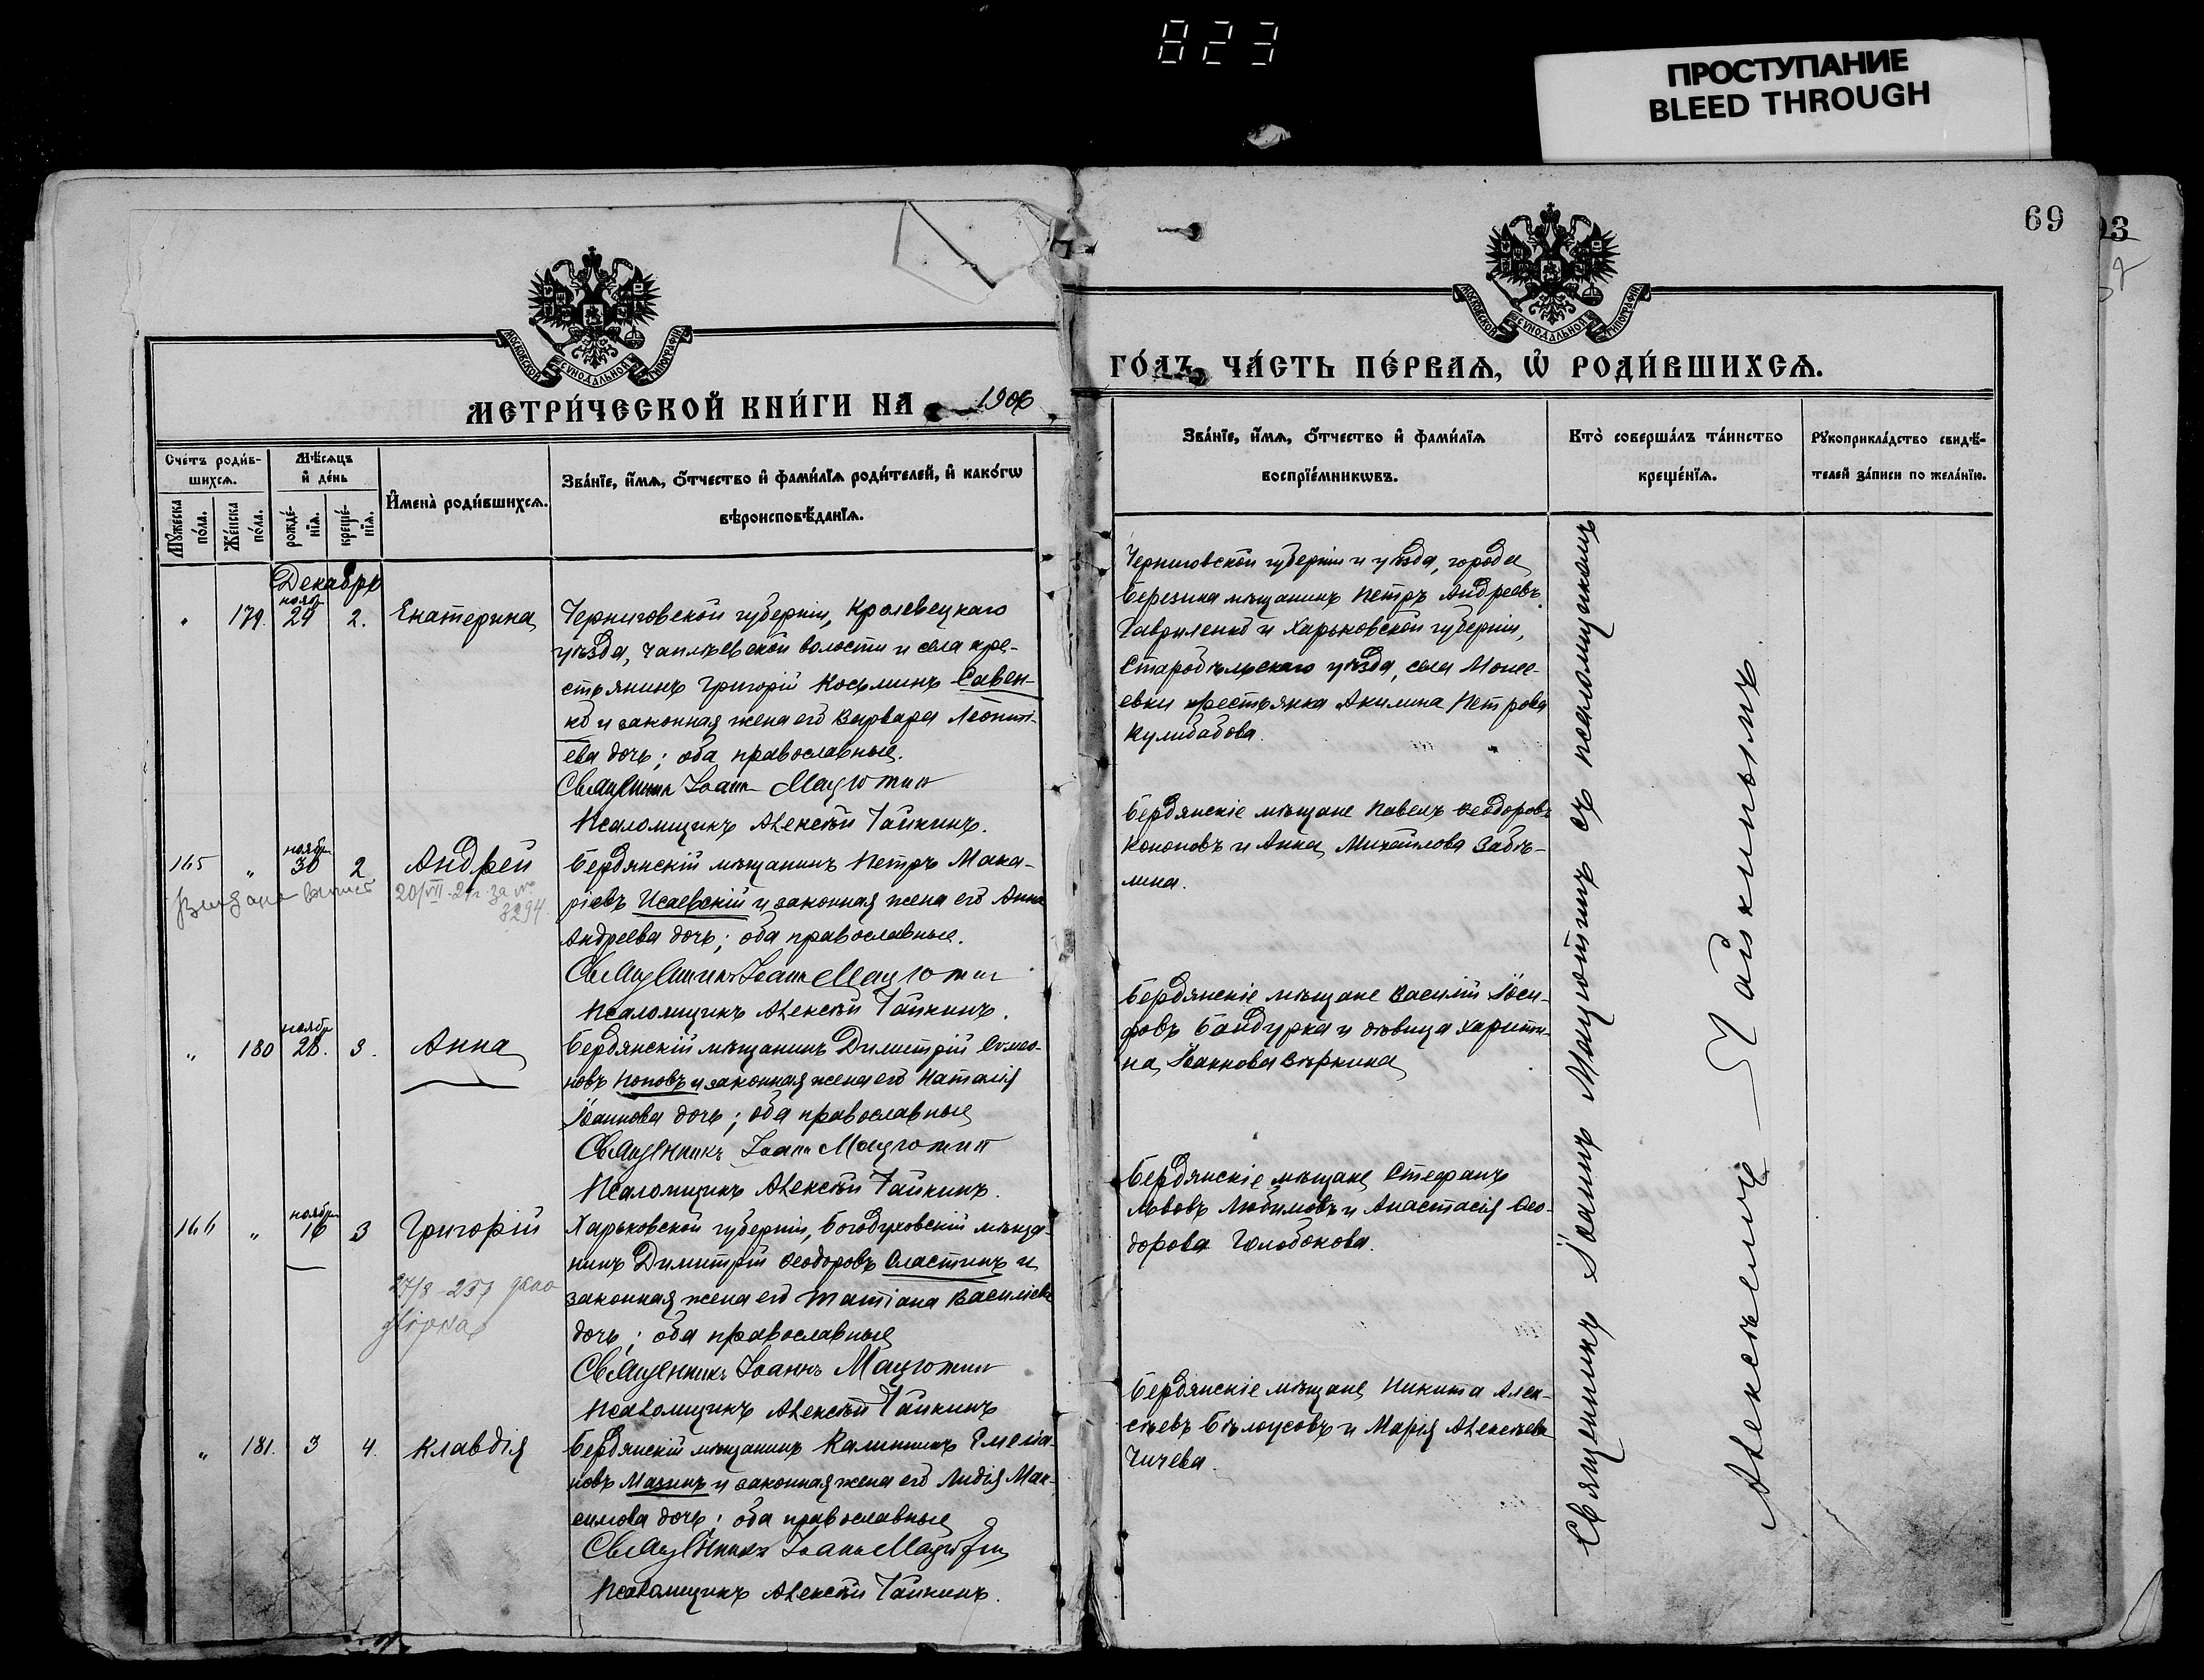 823
ПРОСТУПАНИЕ
BLEED THROUGH
69
93
МОСКОВСКОЙ СѴНОДАЛЬНОЙ ТИПОГРАФІИ
МОСКОВСКОЙ СѴНОДАЛЬНОЙ ТИПОГРАФІИ
МЕТРИ́ЧЕСКОЙ КНИ́ГИ НА 1906
ГО́ДЪ, ЧА́СТЬ ПЕ́РВАѦ, Ѡ҆ РОДИ́ВШИХСѦ.
Сче́тъ роди́в-
шихсѧ.
Мꙋ́жеска
по́ла.
Же́нска
по́ла.
Мѣ́сѧцъ
и҆ де́нь
рожде́-
нїѧ.
креще́-
нїѧ.
И҆мена̀ роди́вшихсѧ.
Зва́нїе, и҆́мѧ, ѻ҆́тчество и҆ фами́лїѧ роди́телей, и҆ како́гѡ
вѣроисповѣ́данїѧ.
Зва́нїе, и҆́мѧ, ѻ҆́тчество и҆ фами́лїѧ
воспрїе́мникѡвъ.
Кто̀ соверша́лъ та́инство
креще́нїѧ.
Рꙋкоприкла́дство свидѣ́-
телей за́писи по жела́нїю.
Декабрь
" 179. нояб. 29 2. Екатерина
Черниговской губерніи, Кролевецкаго
уѣзда, Чаплѣевской волости и села кре-
стьянинъ Григорій Косьминъ Савен-
ко и законная жена его Варвара Леонті-
ева дочь; оба православные.
Священникъ Іоаннъ Мацютинъ
Псаломщикъ Алексѣй Чайкинъ.
Черниговской губерніи и уѣзда, города
Березина мѣщанинъ Петръ Андреевъ
Гавриленко и Харьковской губерніи,
Старобѣльскаго уѣзда, села Мосе-
евки крестьянка Акилина Петрова
Кулибабова.
165 " ноябр. 30 2 Андрей
20/VII-24г. за №
8294
Бердянскій мѣщанинъ Петръ Мака-
ріевъ Исаевскій и законная жена его Анна
Андреева дочь; оба православные.
Священникъ Іоаннъ Мацютинъ
Псаломщикъ Алексѣй Чайкинъ.
Бердянскіе мѣщане Павелъ Ѳеодоровъ
Кононовъ и Анна Михайлова Забѣ-
лина.
" 180 ноябр 28. 3. Анна
Бердянскій мѣщанинъ Димитрій Симео-
новъ Поповъ и законная жена его Наталія
Іоаннова дочь; оба православные
Священникъ Іоаннъ Мацютинъ
Псаломщикъ Алексѣй Чайкинъ.
Бердянскіе мѣщане Василій Іоси-
фовъ Бандурка и дѣвица Харити-
на Іоаннова Вѣркина
166 " ноябр. 16 3 Григорій
Харьковской губерніи, Богодуховскій мѣща-
нинъ Димитрій Ѳеодоровъ Сластинъ и
законная жена его Татіана Василіева
дочь; оба православные
Священникъ Іоаннъ Мацютинъ
Псаломщикъ Алексѣй Чайкинъ
Бердянскіе мѣщане Стефанъ
Львовъ Любимовъ и Анастасія Ѳео-
дорова Голобокова.
" 181. 3 4. Клавдія
Бердянскій мѣщанинъ Калинникъ Емелиа-
новъ Мазинъ и законная жена его Лидія Мак-
симова дочь; оба православные
Священникъ Іоаннъ Мацютинъ
Псаломщикъ Алексѣй Чайкинъ.
Бердянскіе мѣщане Никита Алек-
сѣевъ Бѣлоусовъ и Марія Алексѣева
Чичева.
Священникъ Іоаннъ Мацютинъ съ псаломщикомъ
Алексѣемъ Чайкинымъ.